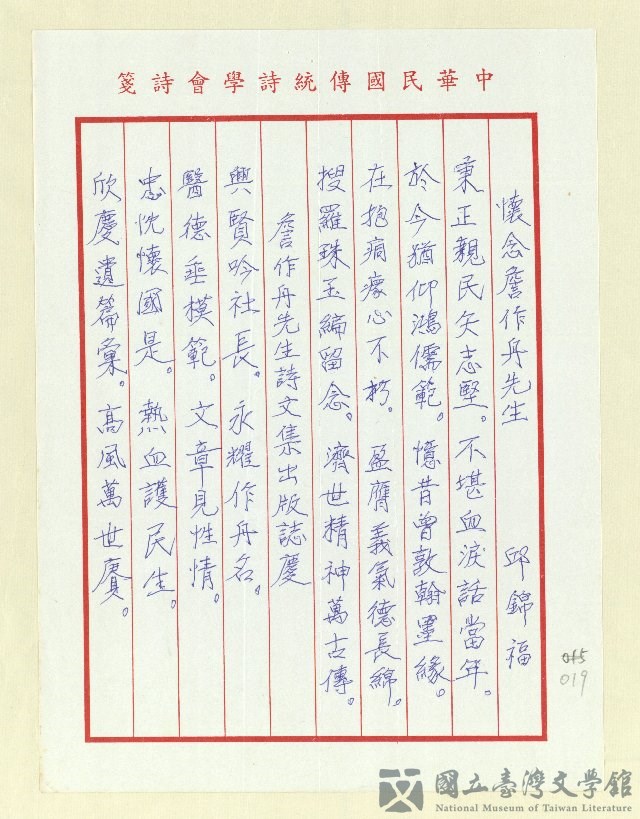 中華民國傳統詩學會詩箋
懷念詹作丹先生　邱錦福
秉正親民矢志堅。不堪血淚話當年。
於今猶仰鴻儒範。憶昔曾敦翰墨緣。
在抱痌瘝心不朽。盈膺義氣德長綿。
搜羅珠玉編留念。濟世精神萬古傳。
詹作丹先生詩文集出版誌慶
興賢吟社長。永耀作丹名。
醫德垂模範。文章見性情。
忠忱懷國是。熱血護民生。
欣慶遺篇彙。高風萬世賡。
015
019
國立臺灣文學館
National Museum of Taiwan Literature